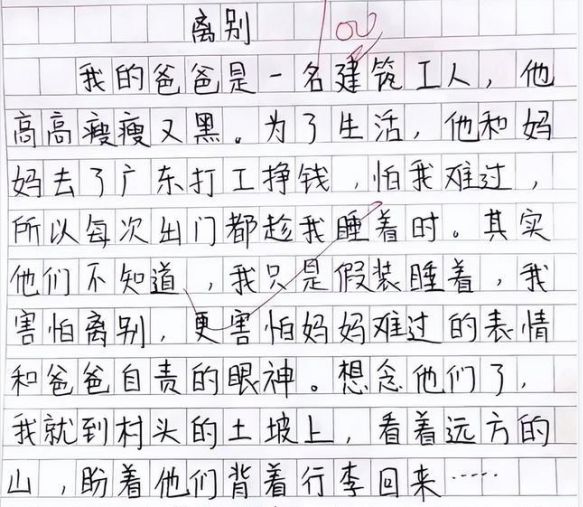 离别 100
我的爸爸是一名建筑工人，他
高高瘦瘦又黑。为了生活，他和妈
妈去了广东打工挣钱，怕我难过，
所以每次出门都趁我睡着时。其实
他们不知道，我只是假装睡着，我
害怕离别，更害怕妈妈难过的表情
和爸爸自责的眼神。想念他们了，
我就到村头的土坡上，看着远方的
山，盼着他们背着行李回来……